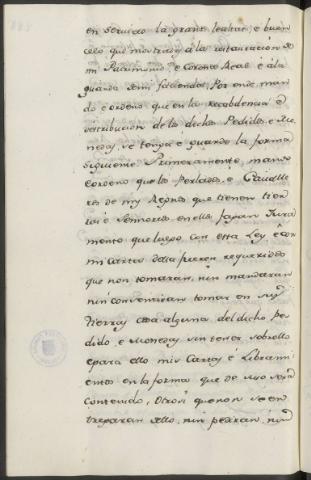 en servicio la grant lealtad, e buen
celo que mostrays á la restauracion de
mi Patrimonio, e Corona Real e á la
guarda de mi facienda; Por ende man
do e ordeno que en la recabdança e
distribucion de los dichos Pedidos, e Mo
nedas, se tenga e guarde la forma
siguiente Primeramente mando
e ordeno que los Perlados, e Cavalle
ros de my Regnos que tienen tier
ras e Sennorios en ellos fagan Jura
mento que luego con esta Ley e con
mi carta della fueren requeridos
que non tomaran, nin mandaran
nin consentiran tomar en sus
Tierras cosa alguna del dicho pe
dido, e Monedas sin tener sobrello
e para ello mis Cartas e Libramí
entos en la forma que de suso será
contenido, Otrosi que non se en
treparan dello, nin pedran, nin